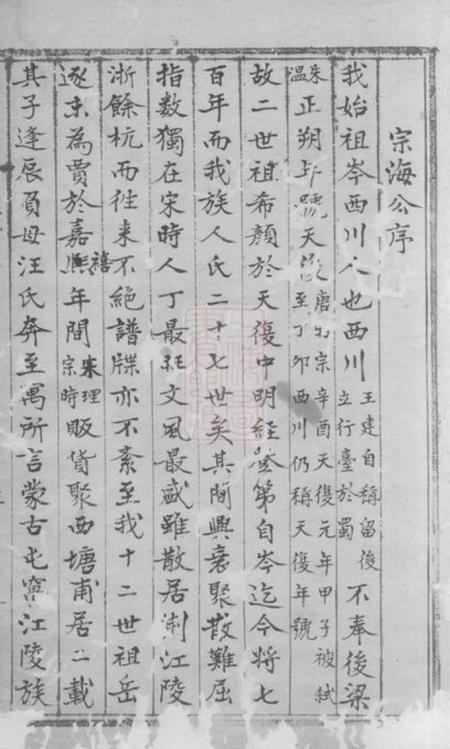 宗海公序
我始祖岑西川人也西川王建自稱留後立行臺於蜀不奉後梁
朱溫正朔年號天復唐昭宗辛酉天復元年甲子被弑至丁卯西川仍稱天復年號
故二世祖希顏於天復中明經登第自岑迄今將七
百年而我族人氏二十七世矣其間興衰聚散難屈
指数獨在宋時人丁最旺文風最盛雖散居淛江陵
浙餘杭而徃来不絕譜牒亦不紊至我十二世祖岳
逐末為賈於嘉熙禧年間宋理宗時販貨聚西塘甫居二載
其子逢辰負母汪氏奔至寓所言蒙古屯寧江陵族